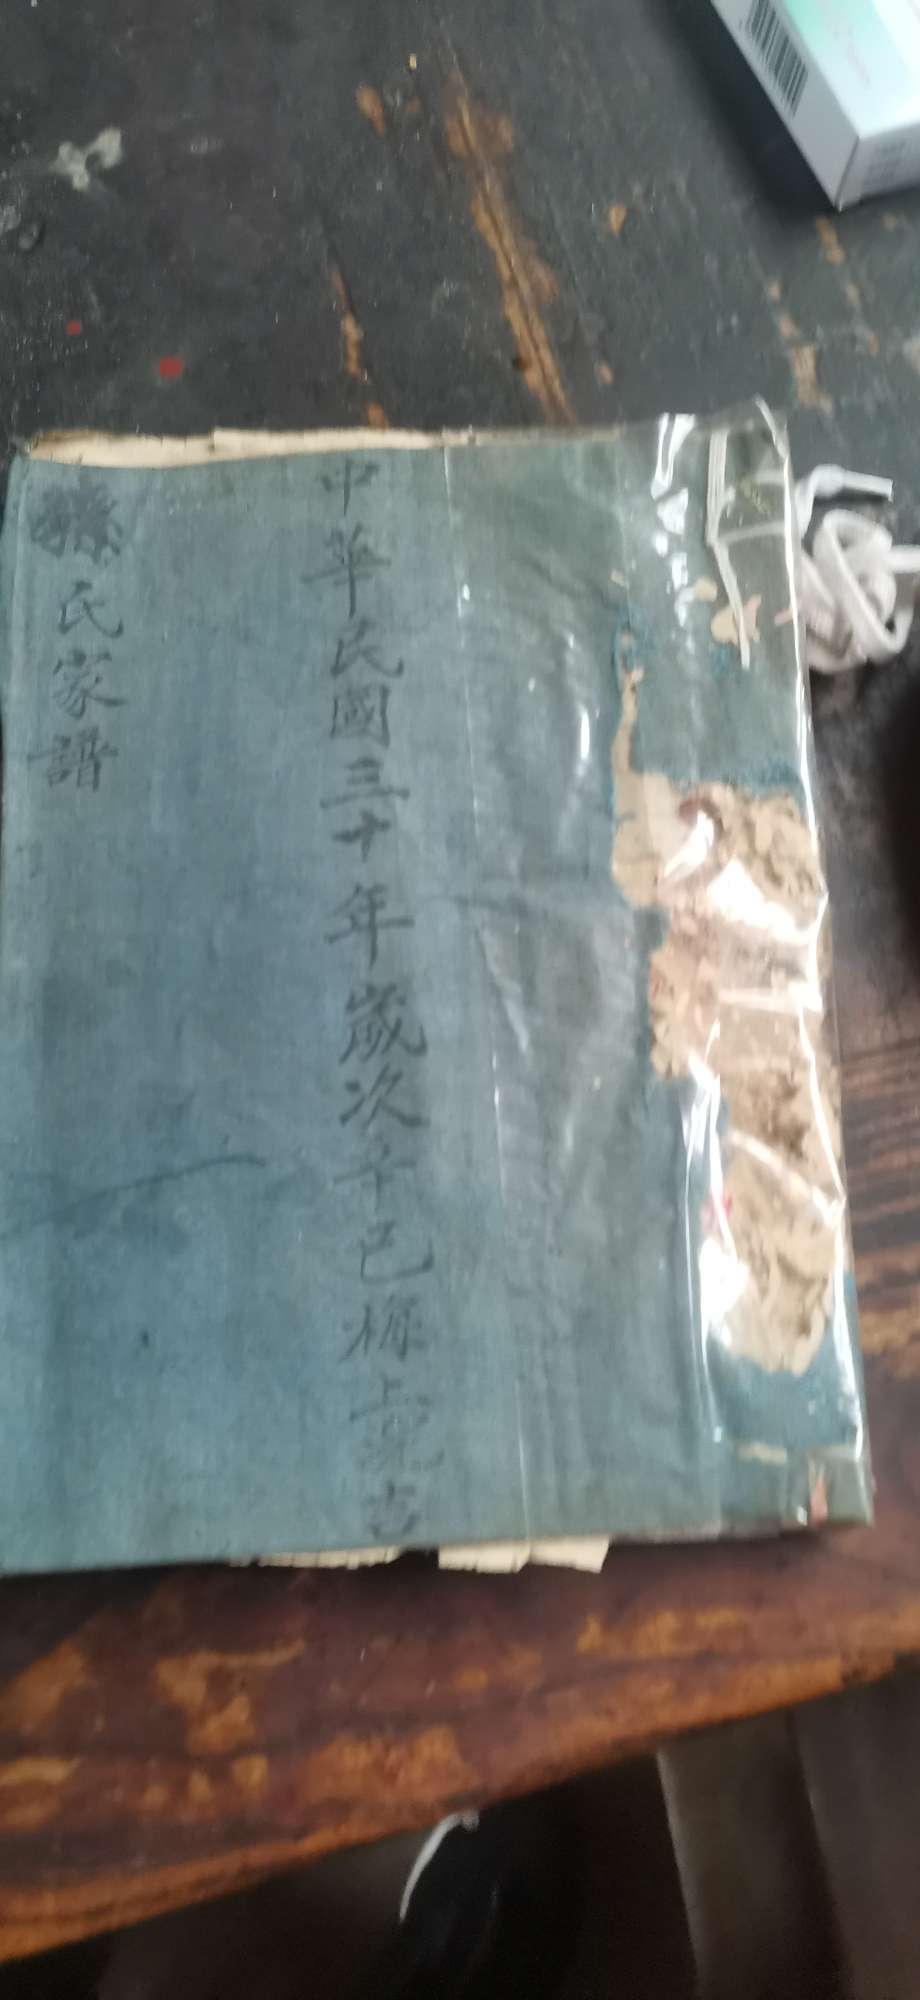 中華民國三十年歲次辛巳梅上浣吉
孫氏家譜